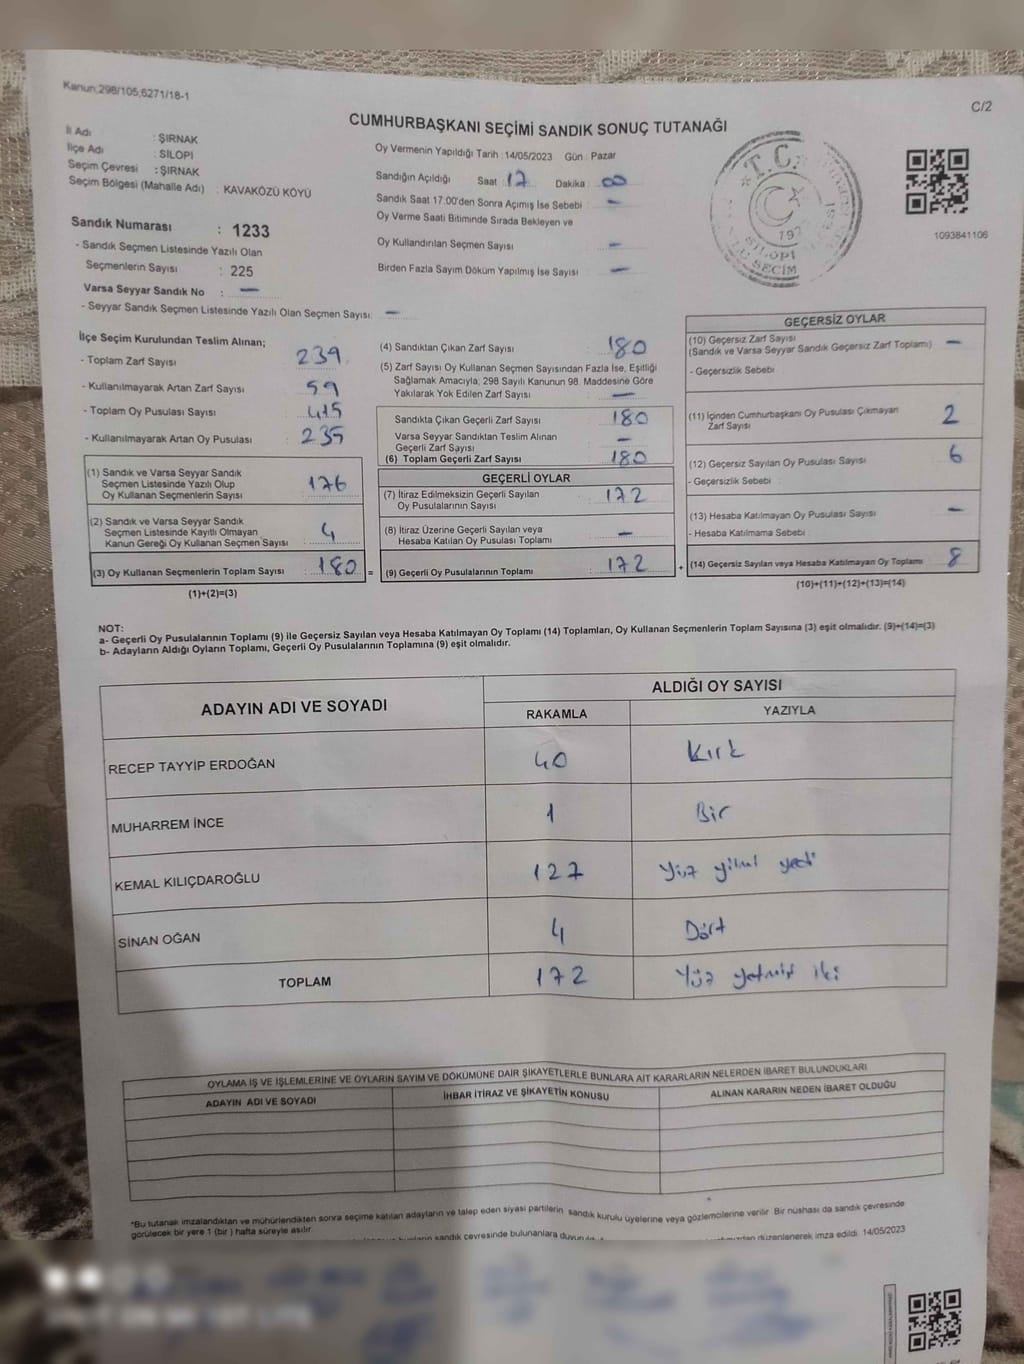 Kanun;298/105,6271/18-1
C/2
CUMHURBAŞKANI SEÇİMİ SANDIK SONUÇ TUTANAĞI
İl Adı : ŞIRNAK
İlçe Adı : SİLOPİ
Seçim Çevresi : ŞIRNAK
Seçim Bölgesi (Mahalle Adı) : KAVAKÖZÜ KÖYÜ
Sandık Numarası : 1233
- Sandık Seçmen Listesinde Yazılı Olan
Seçmenlerin Sayısı : 225
Varsa Seyyar Sandık No : —
- Seyyar Sandık Seçmen Listesinde Yazılı Olan Seçmen Sayısı: —
Oy Vermenin Yapıldığı Tarih : 14/05/2023 Gün : Pazar
Sandığın Açıldığı Saat : 17 Dakika : 00
Sandık Saat 17:00'den Sonra Açımış İse Sebebi : —
Oy Verme Saati Bitiminde Sırada Bekleyen ve
Oy Kullandırılan Seçmen Sayısı : —
Birden Fazla Sayım Döküm Yapılmış İse Sayısı : —
T.C.
SİLOPİ
SEÇİM
1093841106
İlçe Seçim Kurulundan Teslim Alınan;
- Toplam Zarf Sayısı : 239
- Kullanılmayarak Artan Zarf Sayısı : 59
- Toplam Oy Pusulası Sayısı : 415
- Kullanılmayarak Artan Oy Pusulası : 235
(1) Sandık ve Varsa Seyyar Sandık
Seçmen Listesinde Yazılı Olup
Oy Kullanan Seçmenlerin Sayısı : 176
(2) Sandık ve Varsa Seyyar Sandık
Seçmen Listesinde Kayıtlı Olmayan
Kanun Gereği Oy Kullanan Seçmen Sayısı : 4
(3) Oy Kullanan Seçmenlerin Toplam Sayısı : 180 =
(1)+(2)=(3)
(4) Sandıktan Çıkan Zarf Sayısı : 180
(5) Zarf Sayısı Oy Kullanan Seçmen Sayısından Fazla İse, Eşitliği
Sağlamak Amacıyla, 298 Sayılı Kanunun 98. Maddesine Göre
Yakılarak Yok Edilen Zarf Sayısı : —
Sandıkta Çıkan Geçerli Zarf Sayısı : 180
Varsa Seyyar Sandıktan Teslim Alınan
Geçerli Zarf Sayısı : —
(6) Toplam Geçerli Zarf Sayısı : 180
GEÇERLİ OYLAR
(7) İtiraz Edilmeksizin Geçerli Sayılan
Oy Pusulalarının Sayısı : 172
(8) İtiraz Üzerine Geçerli Sayılan veya
Hesaba Katılan Oy Pusulası Toplamı : —
(9) Geçerli Oy Pusulalarının Toplamı : 172 +
GEÇERSİZ OYLAR
(10) Geçersiz Zarf Sayısı
(Sandık ve Varsa Seyyar Sandık Geçersiz Zarf Toplamı) : —
- Geçersizlik Sebebi :
(11) İçinden Cumhurbaşkanı Oy Pusulası Çıkmayan
Zarf Sayısı : 2
(12) Geçersiz Sayılan Oy Pusulası Sayısı : 6
- Geçersizlik Sebebi :
(13) Hesaba Katılmayan Oy Pusulası Sayısı : —
- Hesaba Katılmama Sebebi :
(14) Geçersiz Sayılan veya Hesaba Katılmayan Oy Toplamı : 8
(10)+(11)+(12)+(13)=(14)
NOT:
a- Geçerli Oy Pusulalarının Toplamı (9) ile Geçersiz Sayılan veya Hesaba Katılmayan Oy Toplamı (14) Toplamları, Oy Kullanan Seçmenlerin Toplam Sayısına (3) eşit olmalıdır. (9)+(14)=(3)
b- Adayların Aldığı Oyların Toplamı, Geçerli Oy Pusulalarının Toplamına (9) eşit olmalıdır.
ADAYIN ADI VE SOYADI
ALDIĞI OY SAYISI
RAKAMLA YAZIYLA
RECEP TAYYİP ERDOĞAN 40 Kırk
MUHARREM İNCE 1 Bir
KEMAL KILIÇDAROĞLU 127 Yüz yirmi yedi
SİNAN OĞAN 4 Dört
TOPLAM 172 Yüz yetmiş iki
OYLAMA İŞ VE İŞLEMLERİNE VE OYLARIN SAYIM VE DÖKÜMÜNE DAİR ŞİKAYETLERLE BUNLARA AİT KARARLARIN NELERDEN İBARET BULUNDUKLARI
ADAYIN ADI VE SOYADI İHBAR İTİRAZ VE ŞİKAYETİN KONUSU ALINAN KARARIN NEDEN İBARET OLDUĞU
*Bu tutanak imzalandıktan ve mühürlendikten sonra seçime katılan adayların ve talep eden siyasi partilerin sandık kurulu üyelerine veya gözlemcilerine verilir. Bir nüshası da sandık çevresinde
görülecek bir yere 1 (bir) hafta süreyle asılır.
sandık çevresinde bulunanlara düzenlenerek imza edildi. 14/05/2023